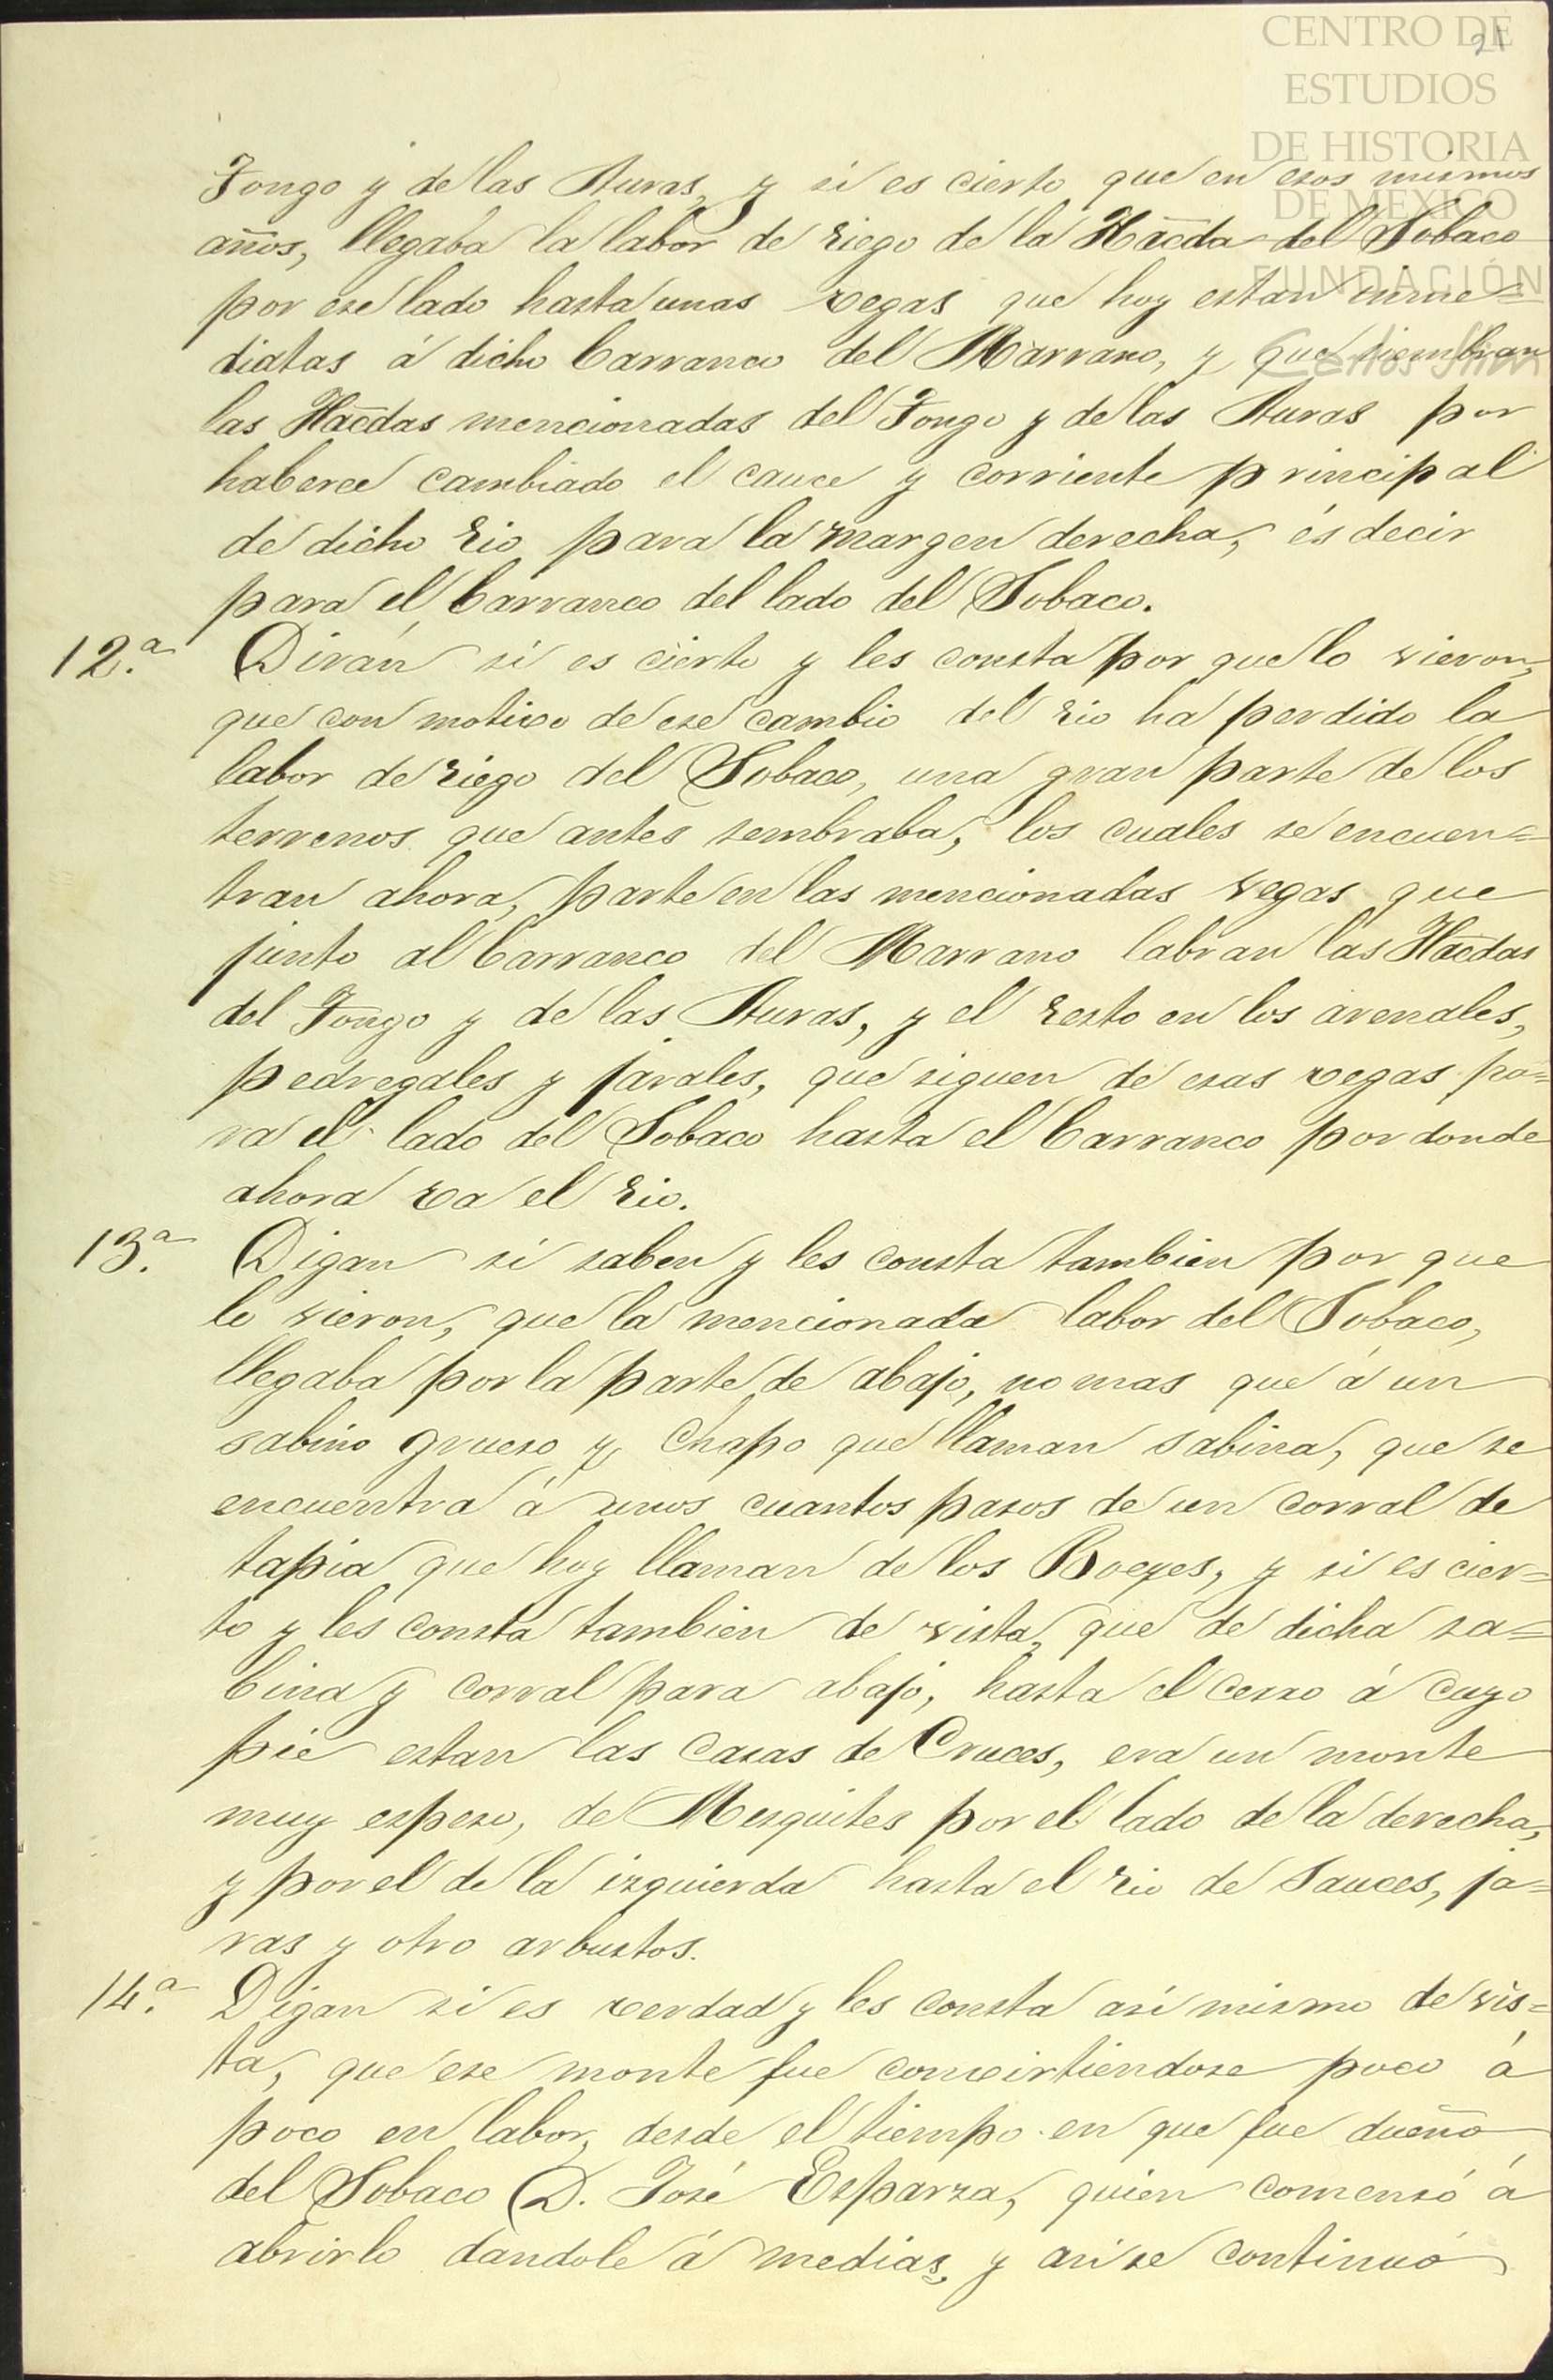 CENTRO DE
ESTUDIOS
DE HISTORIA
DE MEXICO
FUNDACIÓN
Carlos Slim
21
Fongo y de las Auras, y si es cierto que en esos mismos
años, llegaba la labor de riego de la Hacda del Sobaco
por ese lado hasta unas vegas que hoy estan inme=
diatas á dicho barranco del Marrano, y que siembran
las Hacdas mencionadas del Fongo y de las Auras por
haberce cambiado el cauce y corriente principal
de dicho rio para la margen derecha, és decir
para el barranco del lado del Sobaco.
12.a Dirán si es cierto y les consta por que lo vieron,
que con motivo de ese cambio del rio ha perdido la
labor de riego del Sobaco, una gran parte de los
terrenos que antes sembraba, los cuales se encuen=
tran ahora, parte en las mencionadas vegas que
junto al barranco del Marrano labran las Hacdas
del Fongo y de las Auras, y el resto en los arenales,
pedregales y jarales, que siguen de esas vegas pa=
ra el lado del Sobaco hasta el barranco por donde
ahora va el rio.
13.a Digan si saben y les consta tambien por que
lo vieron, que la mencionada labor del Sobaco,
llegaba por la parte de abajo, no mas que á un
sabino grueso y chapo que llaman sabina, que se
encuentra á unos cuantos pasos de un corral de
tapia que hoy llaman de los Boeyes, y si es cier=
to y les consta tambien de vista, que de dicha sa=
bina y corral para abajo, hasta el cerro á cuyo
pie estan las casas de Cruces, era un monte
muy espeso, de Mesquites por el lado de la derecha,
y por el de la izquierda hasta el rio de Sauces, ja=
ras y otro arbustos.
14.a Digan si es verdad y les consta asi mismo de vis=
ta, que ese monte fue convirtiendose poco á
poco en labor, desde el tiempo en que fue dueño
del Sobaco D. José Esparza, quien comensó á
abrirlo dandole á medias, y asi se continuó